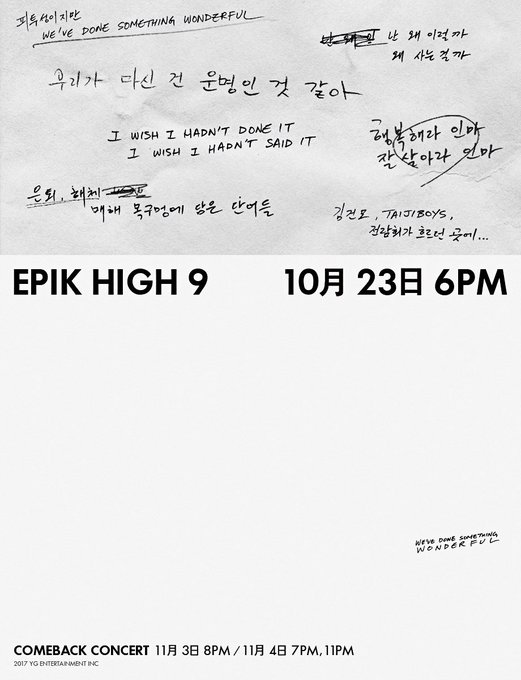 피투성이지만
WE'VE DONE SOMETHING WONDERFUL
난 왜 이럴까
왜 사는 걸까
우리가 마신 건 운명인 것 같아
I WISH I HADN'T DONE IT
I WISH I HADN'T SAID IT
행복해라 인마
잘 살아라 인마
은퇴, 해체
매해 목구멍에 닿은 단어들
김건모, TAIJI BOYS,
전람회가 흐르던 곳에...
EPIK HIGH 9 10月 23日 6PM
WE'VE DONE SOMETHING
WONDERFUL
COMEBACK CONCERT 11月 3日 8PM / 11月 4日 7PM, 11PM
2017 YG ENTERTAINMENT INC